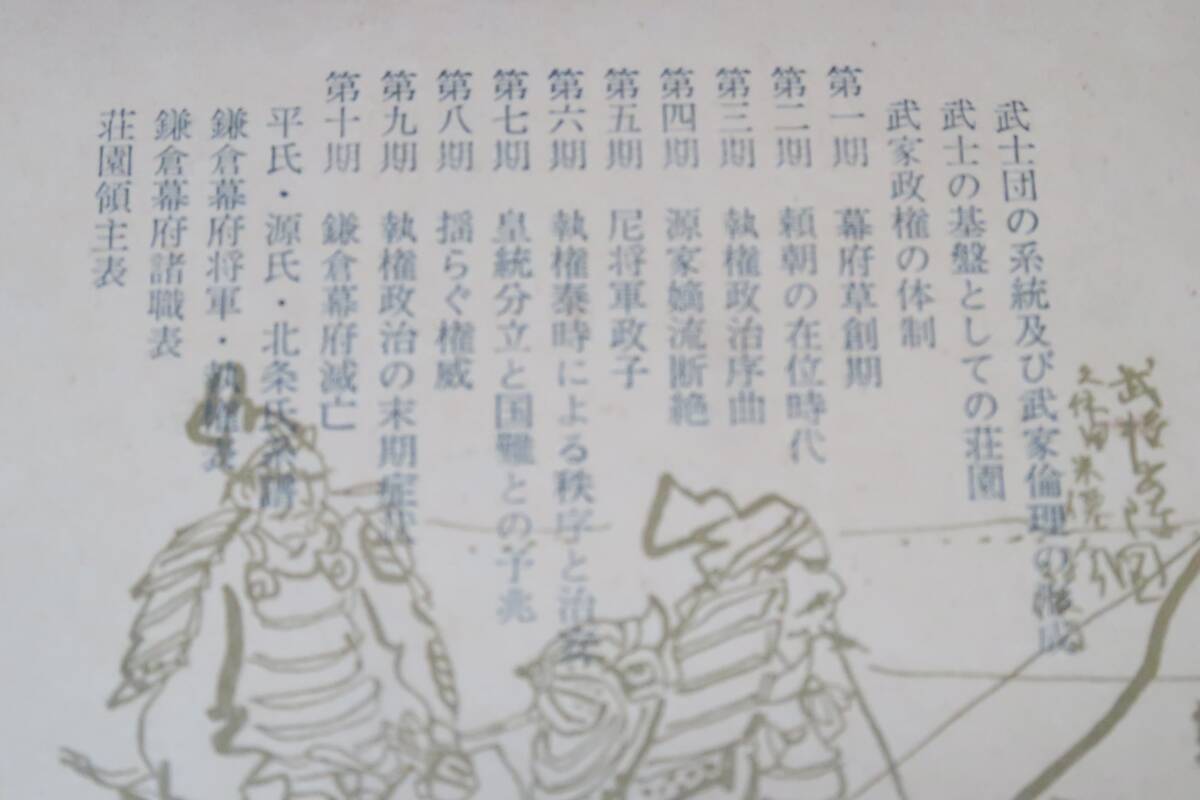 武士団の系統及び武家倫理の構成
武士の基盤としての荘園
武家政権の体制
第一期 幕府草創期
第二期 頼朝の在位時代
第三期 執権政治序曲
第四期 源家嫡流断絶
第五期 尼将軍政子
第六期 執権泰時による秩序と治安
第七期 皇統分立と国難との予兆
第八期 揺らぐ権威
第九期 執権政治の末期症状
第十期 鎌倉幕府滅亡
平氏・源氏・北条氏系譜
鎌倉幕府将軍・執権表
鎌倉幕府諸職表
荘園領主表
武将